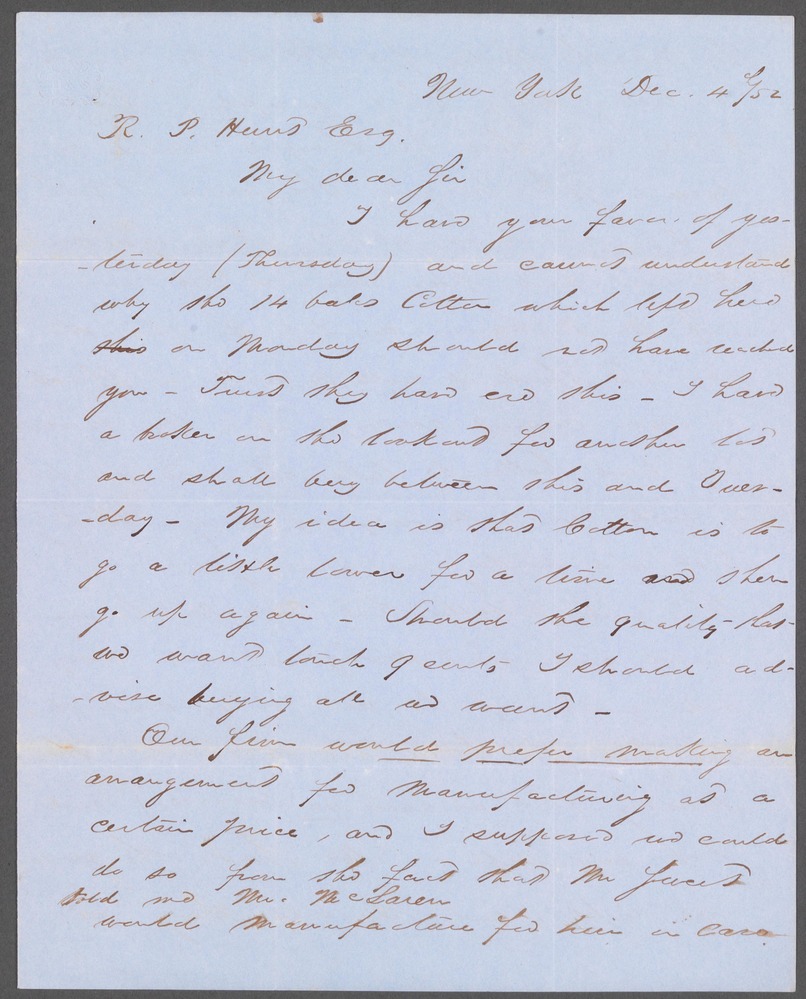 New York Dec. 4th/52
R. P. Hunt Esq.
My dear Sir
I have your favor of yes-
-terday (Thursday) and cannot understand
why the 14 bales Cotton which left here
this on Monday should not have reached
you - Trust they have ere this - I have
a broker on the lookout for another lot
and shall buy between this and Tues-
-day - My idea is that Cotton is to
go a little lower for a time and then
go up again - Should the quality that
we want touch 9 cents I should ad-
-vise buying all we want -
Our firm would prefer making an
arrangement for manufacturing at a
certain price, and I supposed we could
do so from the fact that Mr
told me Mr. McLaren
would manufacture for him in case